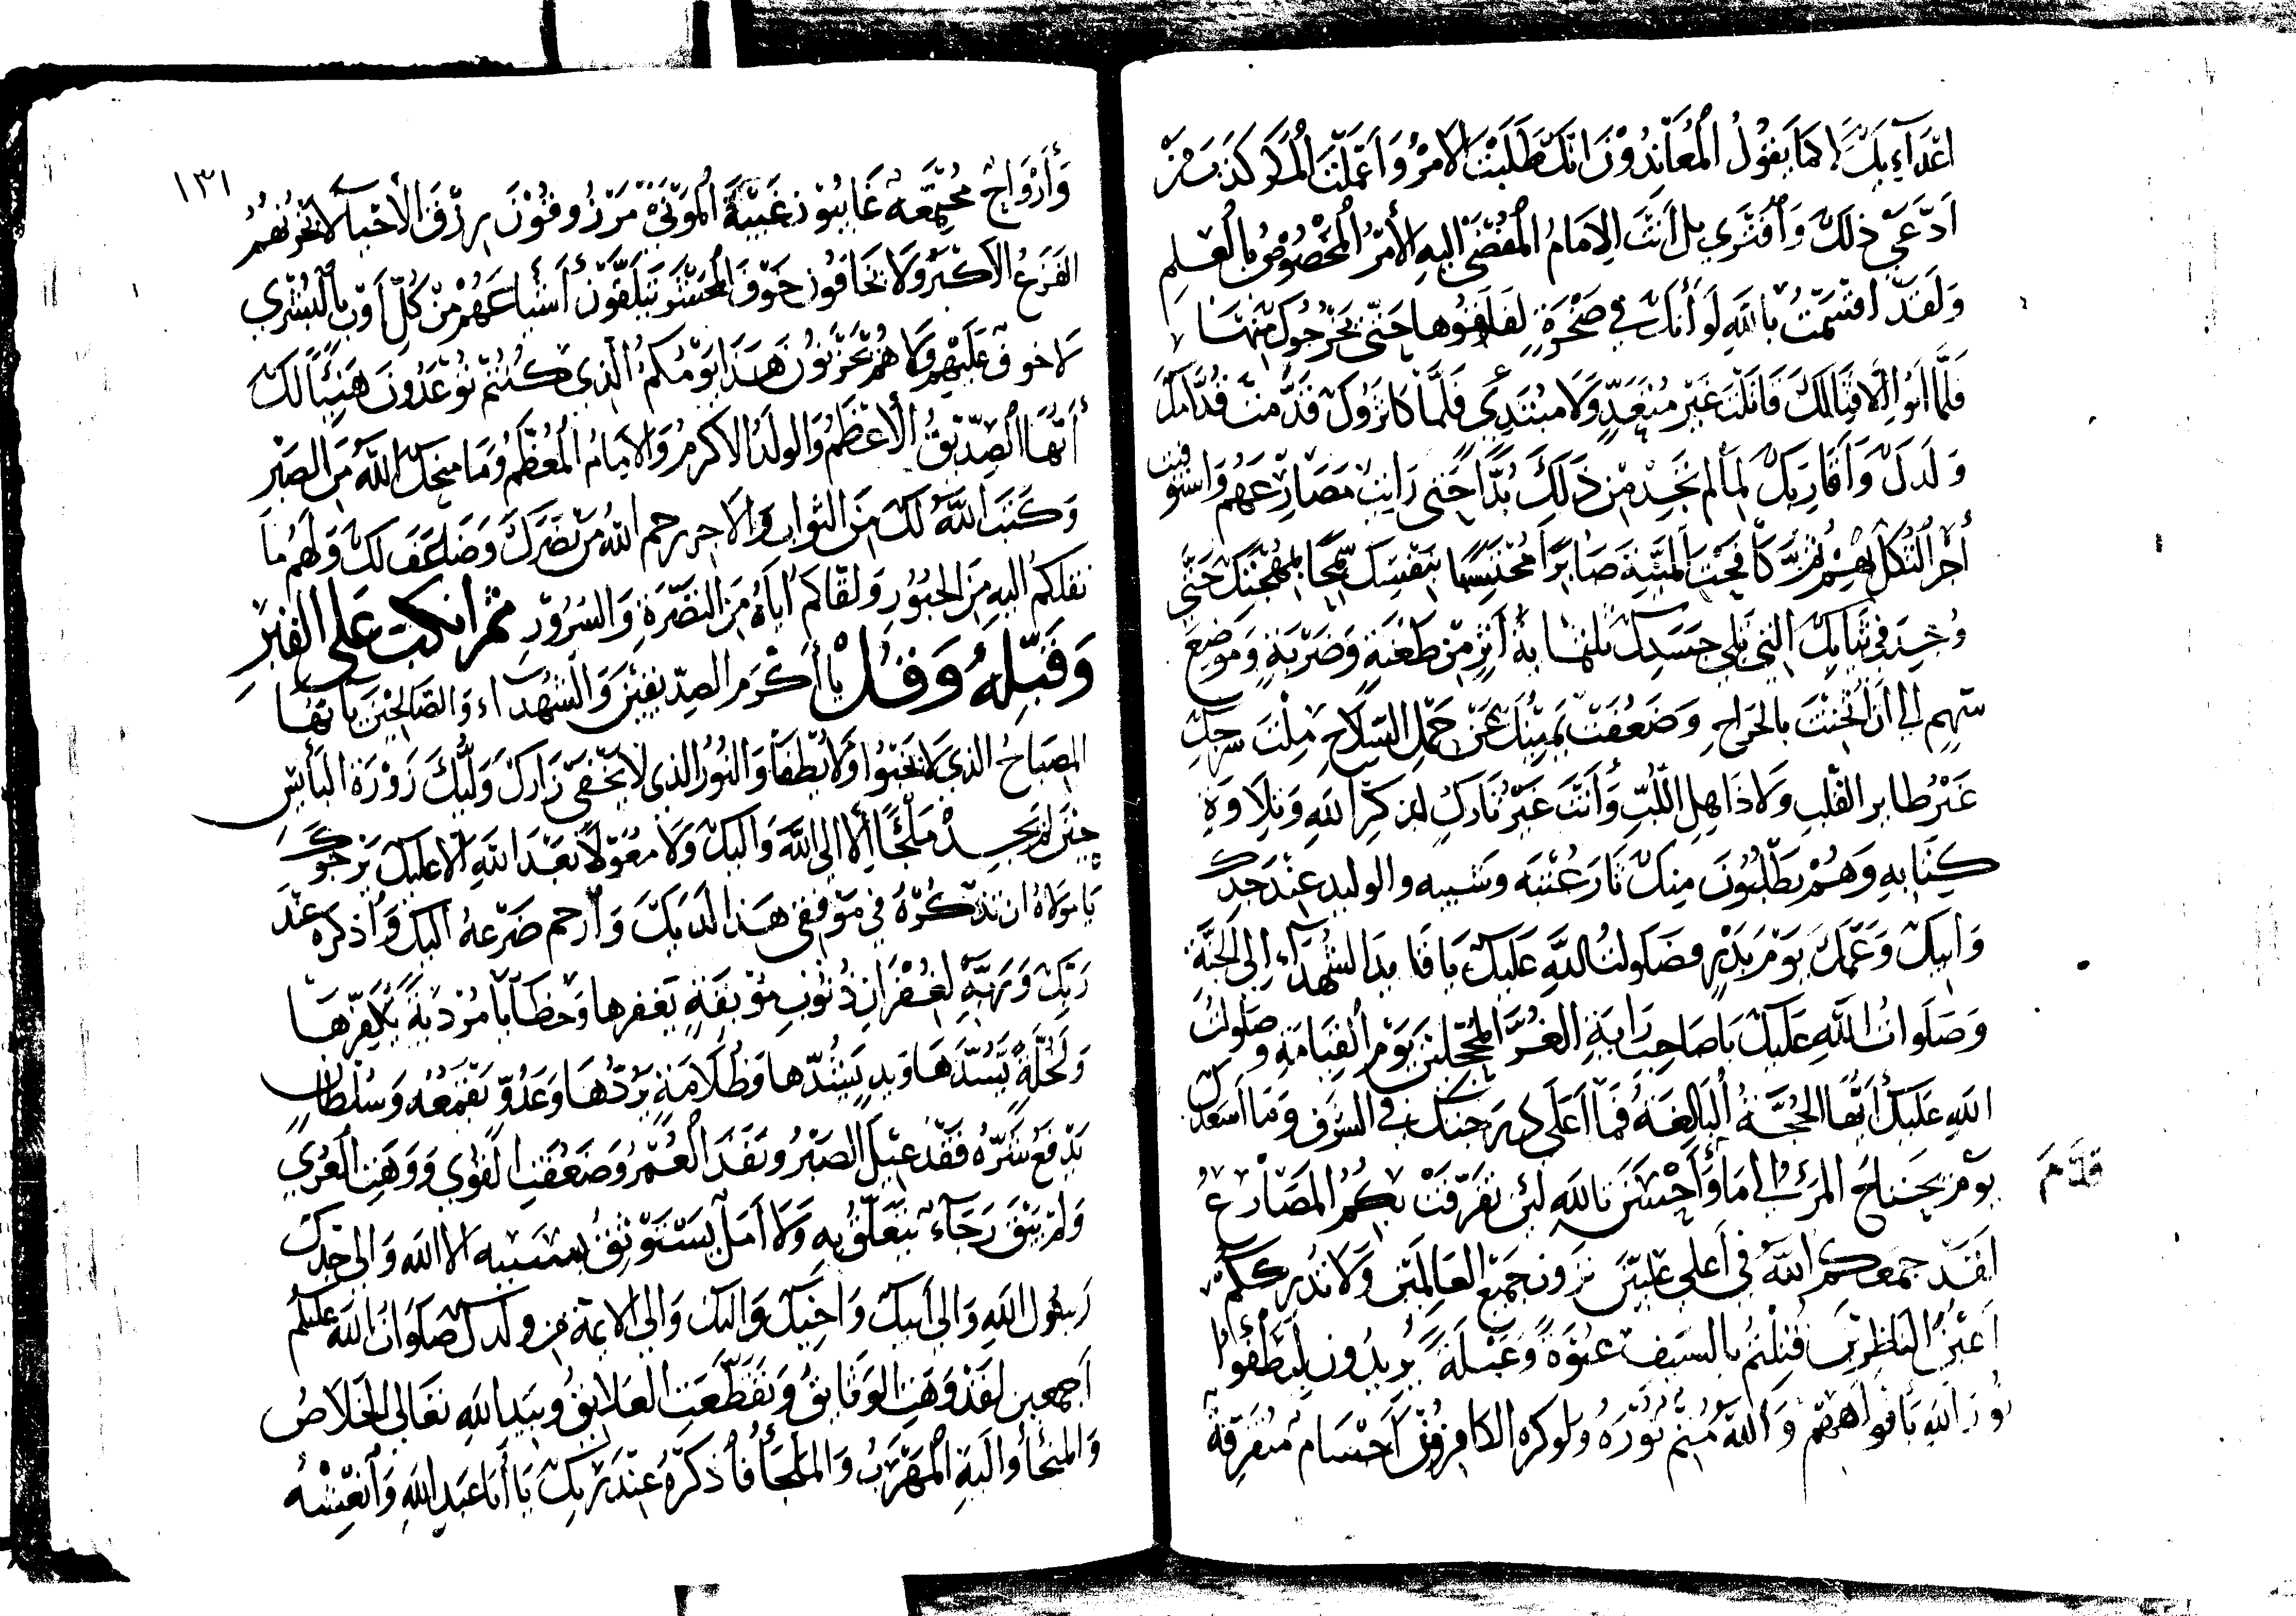 اعْدَآءِ بِكَ لا كمَا يَقُولُ الْمُعَانِدُوْنَ اِنَّكَ طَلَبْتَ الاَمْرَ وَاَعْمَلْتَ الْمَكْرَ كَذَبَ مَنْ
اَدَّعَى ذلَكَ وَاَفْتَرى بل أَنتَ الاِمَامُ الْمُفْضَى اليهِ الأَمْرُ المَخْصُوصُ بالْعِلمِ
وَلَقَدْ اَقسَمْتُ باللهِ لَوْ أَنكَ في صَخْرَةٍ لفلقوها حَتَّى يَخْرِجُوكَ مِنْهَا
فَلَمَّا ابَوا اِلَّا قِتَالَكَ قَاتَلْتَ غَيْرَ مُتَعَدٍّ وَلَا مبْتَدِي فَلَمَّا كَاثَرُوكَ قَدَّمْتَ قُدَّامَكَ
وَلَدَكَ وَاَقَارِبَكَ لمَا لم تَجِدْ مِن ذَلَكَ بُدًّا حَتى رَايتَ مَصَارِعَهُم وَاستَوفيت
أَجْرَ الثُكْلِ بهِمْ ثُمَّ كَافَحْتَ الْمَنِيَّةَ صَابِرًا مُحْتَسِبًا بنَفْسِكَ سَمِحًا بمُهْجَتِكَ حَتَّى
وُجِدَ في ثيَابِكَ التي تَلى جَسَدِكَ ثلثمَا بةُ أَثَرٍ مِنْ طَعْنَةٍ وَضَرْبَةٍ وَمَوْضِعِ
سَهِمٍ الي اَنْ اُثْخِنْتَ بالجَراحِ وَضَعُفَتْ يَمِيْنُكَ عَنْ حَمْلِ السِّلاَحِ مِلْتَ سرجكَ
غَيْرُ طايرِ القَلْبِ ولاذَاهِلِ اللُّبِّ وَأَنتَ غَيْرُ تَارِكٍ لِذِكْرِ اللهِ وَتِلاوَةِ
كِتَابهِ وَهُمْ يَطْلُبُونَ مِنكَ ثَارَ عُتْبَه وَشَيبه والوليدِ عِنْدَ جَدِكَ
وَابيكَ وَعَمِّكَ يَوْمَ بَدْرٍ فصَلَولتُ اللهِ عَلَيكَ يَا قَايدَ الشُهَدَآءِ اِلى الجَنَّةِ
وَصَلَواتُ اللهِ عَلَيكَ يَا صَاحِبَ رَايَةِ الْغُرِّ الْمُحَجَّلِينَ يَوْمَ الْقِيَامَةِ وَصَلَولتُ
اللهِ عَلَيكَ أَيُّهَا الحُجَّةُ الْبَالِغَةُ فمَا اَعَلَى دَرَجتكَ في الشَرَفِ وَمَا اَسْعَدَكَ
يَوْمَ يَحْتَاجُ المَرْءُ الي مَا قَدَّمَ
وَأَحْسَنَ تاللهِ لئِن تفَرّقَتْ بكُمُ المَصَارِعُ
لَقَدْ جمَعَكُم اللهُ في اَعلى عليّينَ تَرَونَ جَمِيْعَ العَالِمَيْنَ وَلاَ تُدْرِككُمْ
اَعْيُنُ النَاظِرينَ قُتِلْتُم بالسَيفِ عنوَةً وَغيلَةً يُرِيدُونَ لِيُطْفِؤُا
نُورَ اللهِ بَافوَاهِهِمْ وَ اللهُ مُتِمُّ نُوْرَهُ وَلوكره الكافِرُونَ اَجْسَام مُتفَرّقةٌ
١٣١
وَأَرْوَاحٌ مُجْتَمِعَه غَايبُونَ غَيْبَةَ الْمَوْتَى مَرْزُوقُوْنَ رِزْقَ الأَحْيآءِ لاَيَحْزُنُهُمُ
الفَزعُ الاَكْبَرُ وَلاَ يَخَافُونَ خَوْفَ المَحْشَرِ يَتَلَقَّوْنَ أَشْيَاعَهُمْ مِنْ كُلِّ اَوْبٍ بِالْبُشْرى
لا خوفٌ عَلَيْهِم وَلاَ هُمْ يَحْزَنُونَ هَذا يَوْمُكُمُ الَّذِى كُنتُمْ تُوعَدُونَ هَنِيئًا لَكَ
أَيُّهَا الصِّدِّيقُ الأَعْظَمُ وَالوَلَدُ الاَكرَمُ وَالاِمَامُ الْمُعَظَّمُ وَمَا منحَكَ اللهُ مِنَ الصَبْرِ
وَكَتَبَ اللهُ لَكَ مِنَ الثوابِ وَالاَجرِ رحم اللهُ مَنْ نَصَرَكَ وَضَاعَفَ لكَ وَلَهُم مَا
نقلكُم اليهِ مِنَ الحُبُوْرِ وَلقَّاكمُ اياهُ مِنَ النَضْرَةِ وَالسُرُوْرِ ثمَ انكبّ عَلَى القبْرِ
وَقَبِّلهُ وَقُلْ يَا أَكْرَمَ الصِدّيقيْنَ وَالشهَدآءِ وَالصَالحيْنَ يَا أيُّهَا
المِصْبَاحُ الذي لاَ يَخْبُوا وَلاَ يُطْفَأُ وَالنُورُ الذى لاَ يَخْفى زَارَكَ وَليُّكَ زَوْرَةَ البَأَيسِ
حِيْنَ لَمْ يَجِدْ مَلْجَأً اِلَّا اِلى اللهِ وَاليكَ وَلاَ مُعَوَّلاً بَعْدَ اللهِ اِلا عليكَ يَرْجُوكَ
يَا مَوْلاهُ ان تذْكُرَهُ في مَوْقِفى هَذا لدَيكَ وَارْحم ضَرْعهُ اليكَ وَاذكرَه عِنْدَ
رَبِّكَ وَرَبِّهِ لغُفْرَانِ ذُنُوبٍ مُوْبِقَةٍ يَغفرهَا وَخطَايَا مُرْدِيَةٍ يُكَفِّرُهَا
وَلَخُلّةٍ يَسُدُّهَا وَيدٍ يَشُدُّها وَظُلاَمَةٍ يَرُدُّهَا وَعَدُوٍّ يَقْمَعُهُ وَسُلطانٍ
يَدْفَعُ شَرَّهُ فَقَدْ عِيْلَ الصَبْرُ ونَفَدَ الْعُمْرُ وَضَعُفَتِ القُوى وَوَهَنتِ العُرى
وَلَمْ يَبْقَ رَجَآءٌ يَتَعَلّقُ بِهِ وَلاَ اَمَلٌ يَسْتَوثِقُ بسَببِهِ الا الله وَالى جَدِّكَ
رَسُولِ اللهِ وَالي أبيكَ وَاخيْكَ وَاليكَ وَالي الايمَّةِ مِن وَلَدِكَ صَلوَاتُ اللهِ عَليكُم
اَجمعين لقدْ وَهَنتِ الوَثَايقُ وَتقَطّعَتِ العَلايقُ وَبيَدِ اللهِ تعَالى الخَلاَصُ
وَالمنجَأُ وَاليهِ الْمَهْرَبُ وَالمَلْجَأُ فَاْذكُرْهُ عِنْدَ رَبِّكَ يَا أَبَا عَبدِ اللهِ وَأَنْعِشْهُ